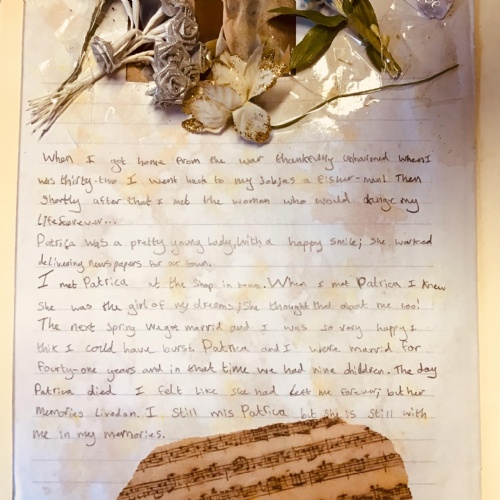 When I got home from the war thankfully unharmed when I
was thirty-two I went back to my job as a fisher-man! Then
shortly after that I met the woman who would change my
life forever...
Patrica was a pretty young lady, with a happy smile; she worked
delivering newspapers for our town.
I met Patrica at the shop in town. When I met Patrica I knew
she was the girl of my dreams; she thought that about me too!
The next spring we got marrid and I was so very happy I
thik I could have burst. Patrica and I were marrid for
fourty-one years and in that time we had nine children. The day
Patrica died I felt like she had left me forever; but her
memories lived on. I still mis Patrica but she is still with
me in my memories.